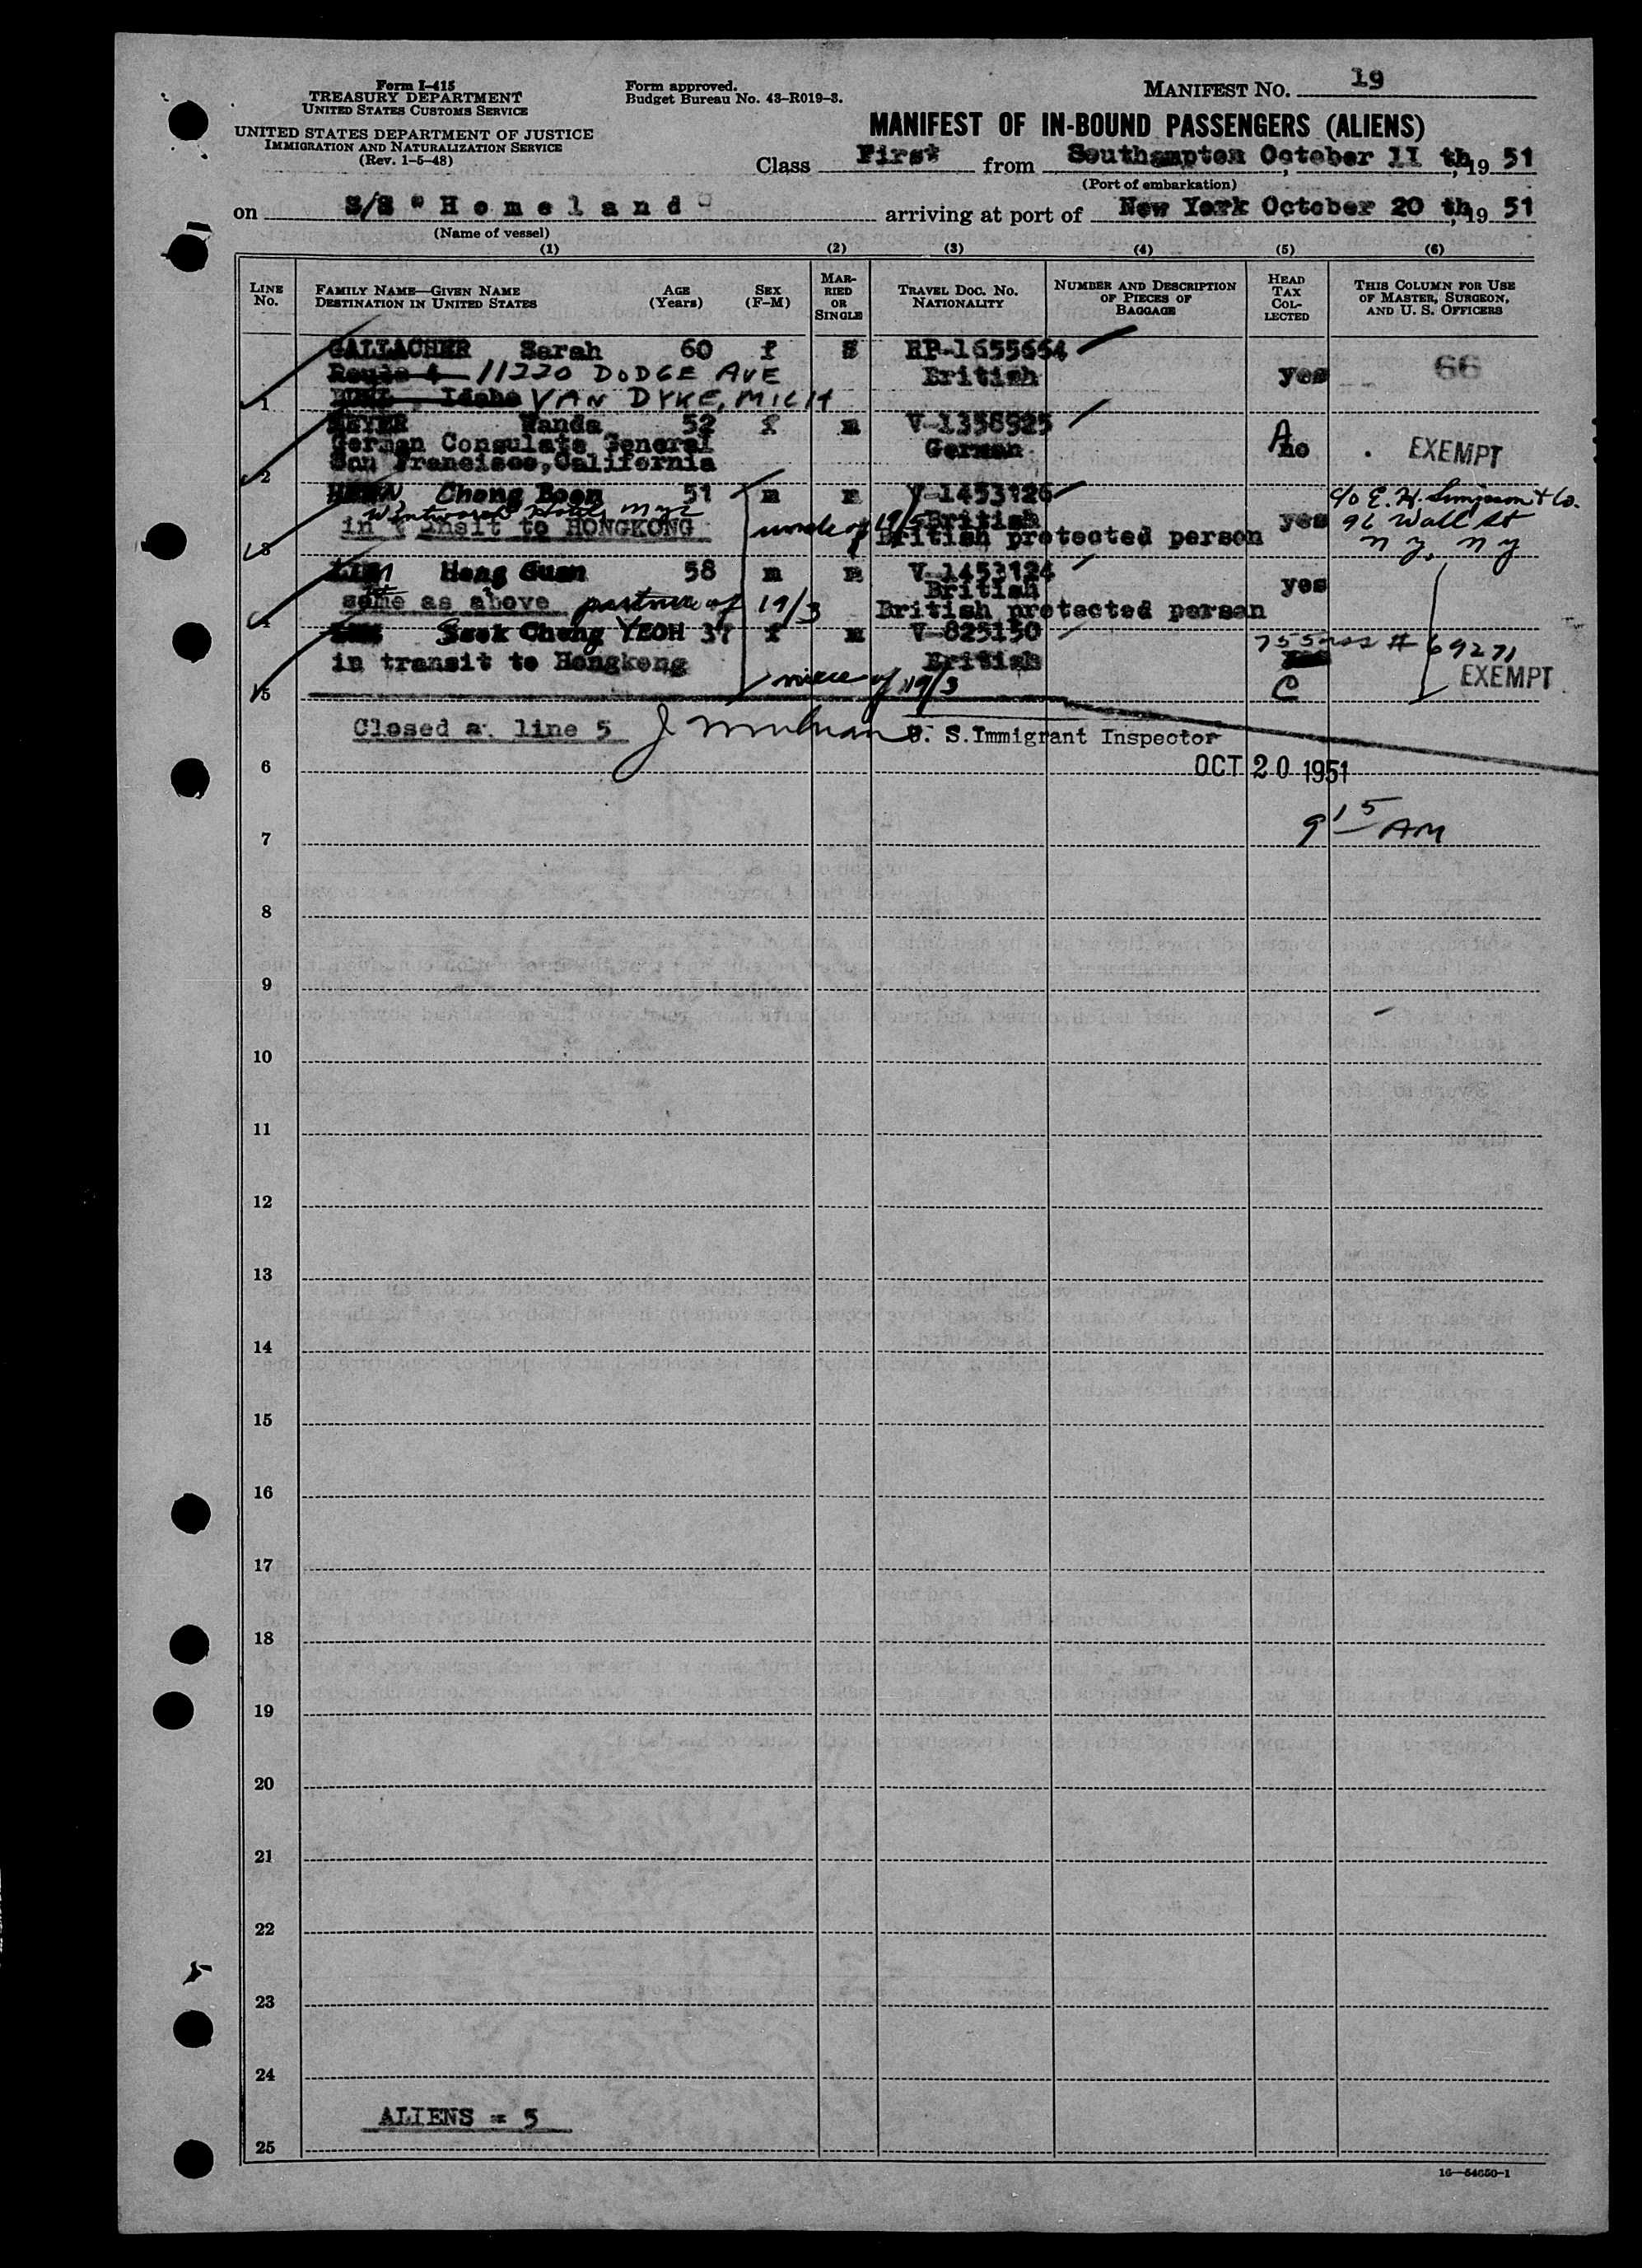 Form I-415
TREASURY DEPARTMENT
UNITED STATES CUSTOMS SERVICE
UNITED STATES DEPARTMENT OF JUSTICE
IMMIGRATION AND NATURALIZATION SERVICE
(Rev. 1-5-48)
Form approved.
Budget Bureau No. 43-R019-3.
MANIFEST NO. 19
MANIFEST OF IN-BOUND PASSENGERS (ALIENS)
Class First from Southampton October 11 th, 19 51
(Port of embarkation)
on S/S "Homeland" arriving at port of New York October 20 th, 19 51
(Name of vessel)
(1) (2) (3) (4) (5) (6)
LINE No. FAMILY NAME—GIVEN NAME DESTINATION IN UNITED STATES AGE (Years) SEX (F-M) MARRIED OR SINGLE TRAVEL DOC. NO. NATIONALITY NUMBER AND DESCRIPTION OF PIECES OF BAGGAGE HEAD TAX COLLECTED THIS COLUMN FOR USE OF MASTER, SURGEON, AND U. S. OFFICERS
GALLACHER Sarah 60 f S RP-1655664
Route 4 11220 DODGE AVE British yes 66
1 Idaho VAN DYKE, MICH
MEYER Wanda 52 f m V-1358925
German Consulate General German no EXEMPT
2 San Francisco, California
Cheng Boon 51 m m V-1453126 c/o E.W. Simpson & Co.
Wintworth Hotel NYC British yes 96 Wall St
3 in transit to HONGKONG uncle of 19/5 British protected person N.Y. N.Y
LIM Hong Guan 58 m m V-1453124
British yes
4 same as above partner of 19/3 British protected person
Seok Cheng YEOH 37 f m V-825150 # 69271
in transit to Hongkong British EXEMPT
5 niece of 19/3 C
Closed at line 5 U. S. Immigrant Inspector
6 OCT 20 1951
7 9 15 AM
8
9
10
11
12
13
14
15
16
17
18
19
20
21
22
23
24
ALIENS = 5
25
16—54650-1